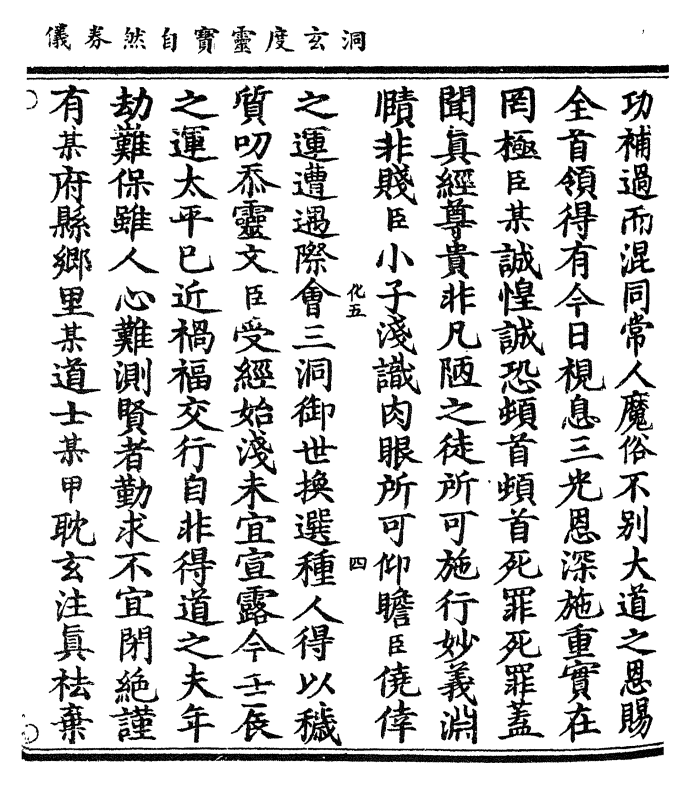 洞玄度靈寶自然券儀
功補過而混同常人魔俗不別大道之恩賜
全首領得有今日視息三光恩深施重實在
罔極臣某誠惶誠恐頓首頓首死罪死罪蓋
聞真經尊貴非凡陋之徒所可施行妙義淵
賾非賤臣小子淺識肉眼所可仰瞻臣僥倖
化五
四
之運遭遇際會三洞御世換選種人得以穢
質叨忝靈文臣受經始淺未宜宣露今壬辰
之運太平已近禍福交行自非得道之夫年
劫難保雖人心難測賢者勤求不宜閉絕謹
有某府縣鄉里某道士某甲耽玄注真祛棄